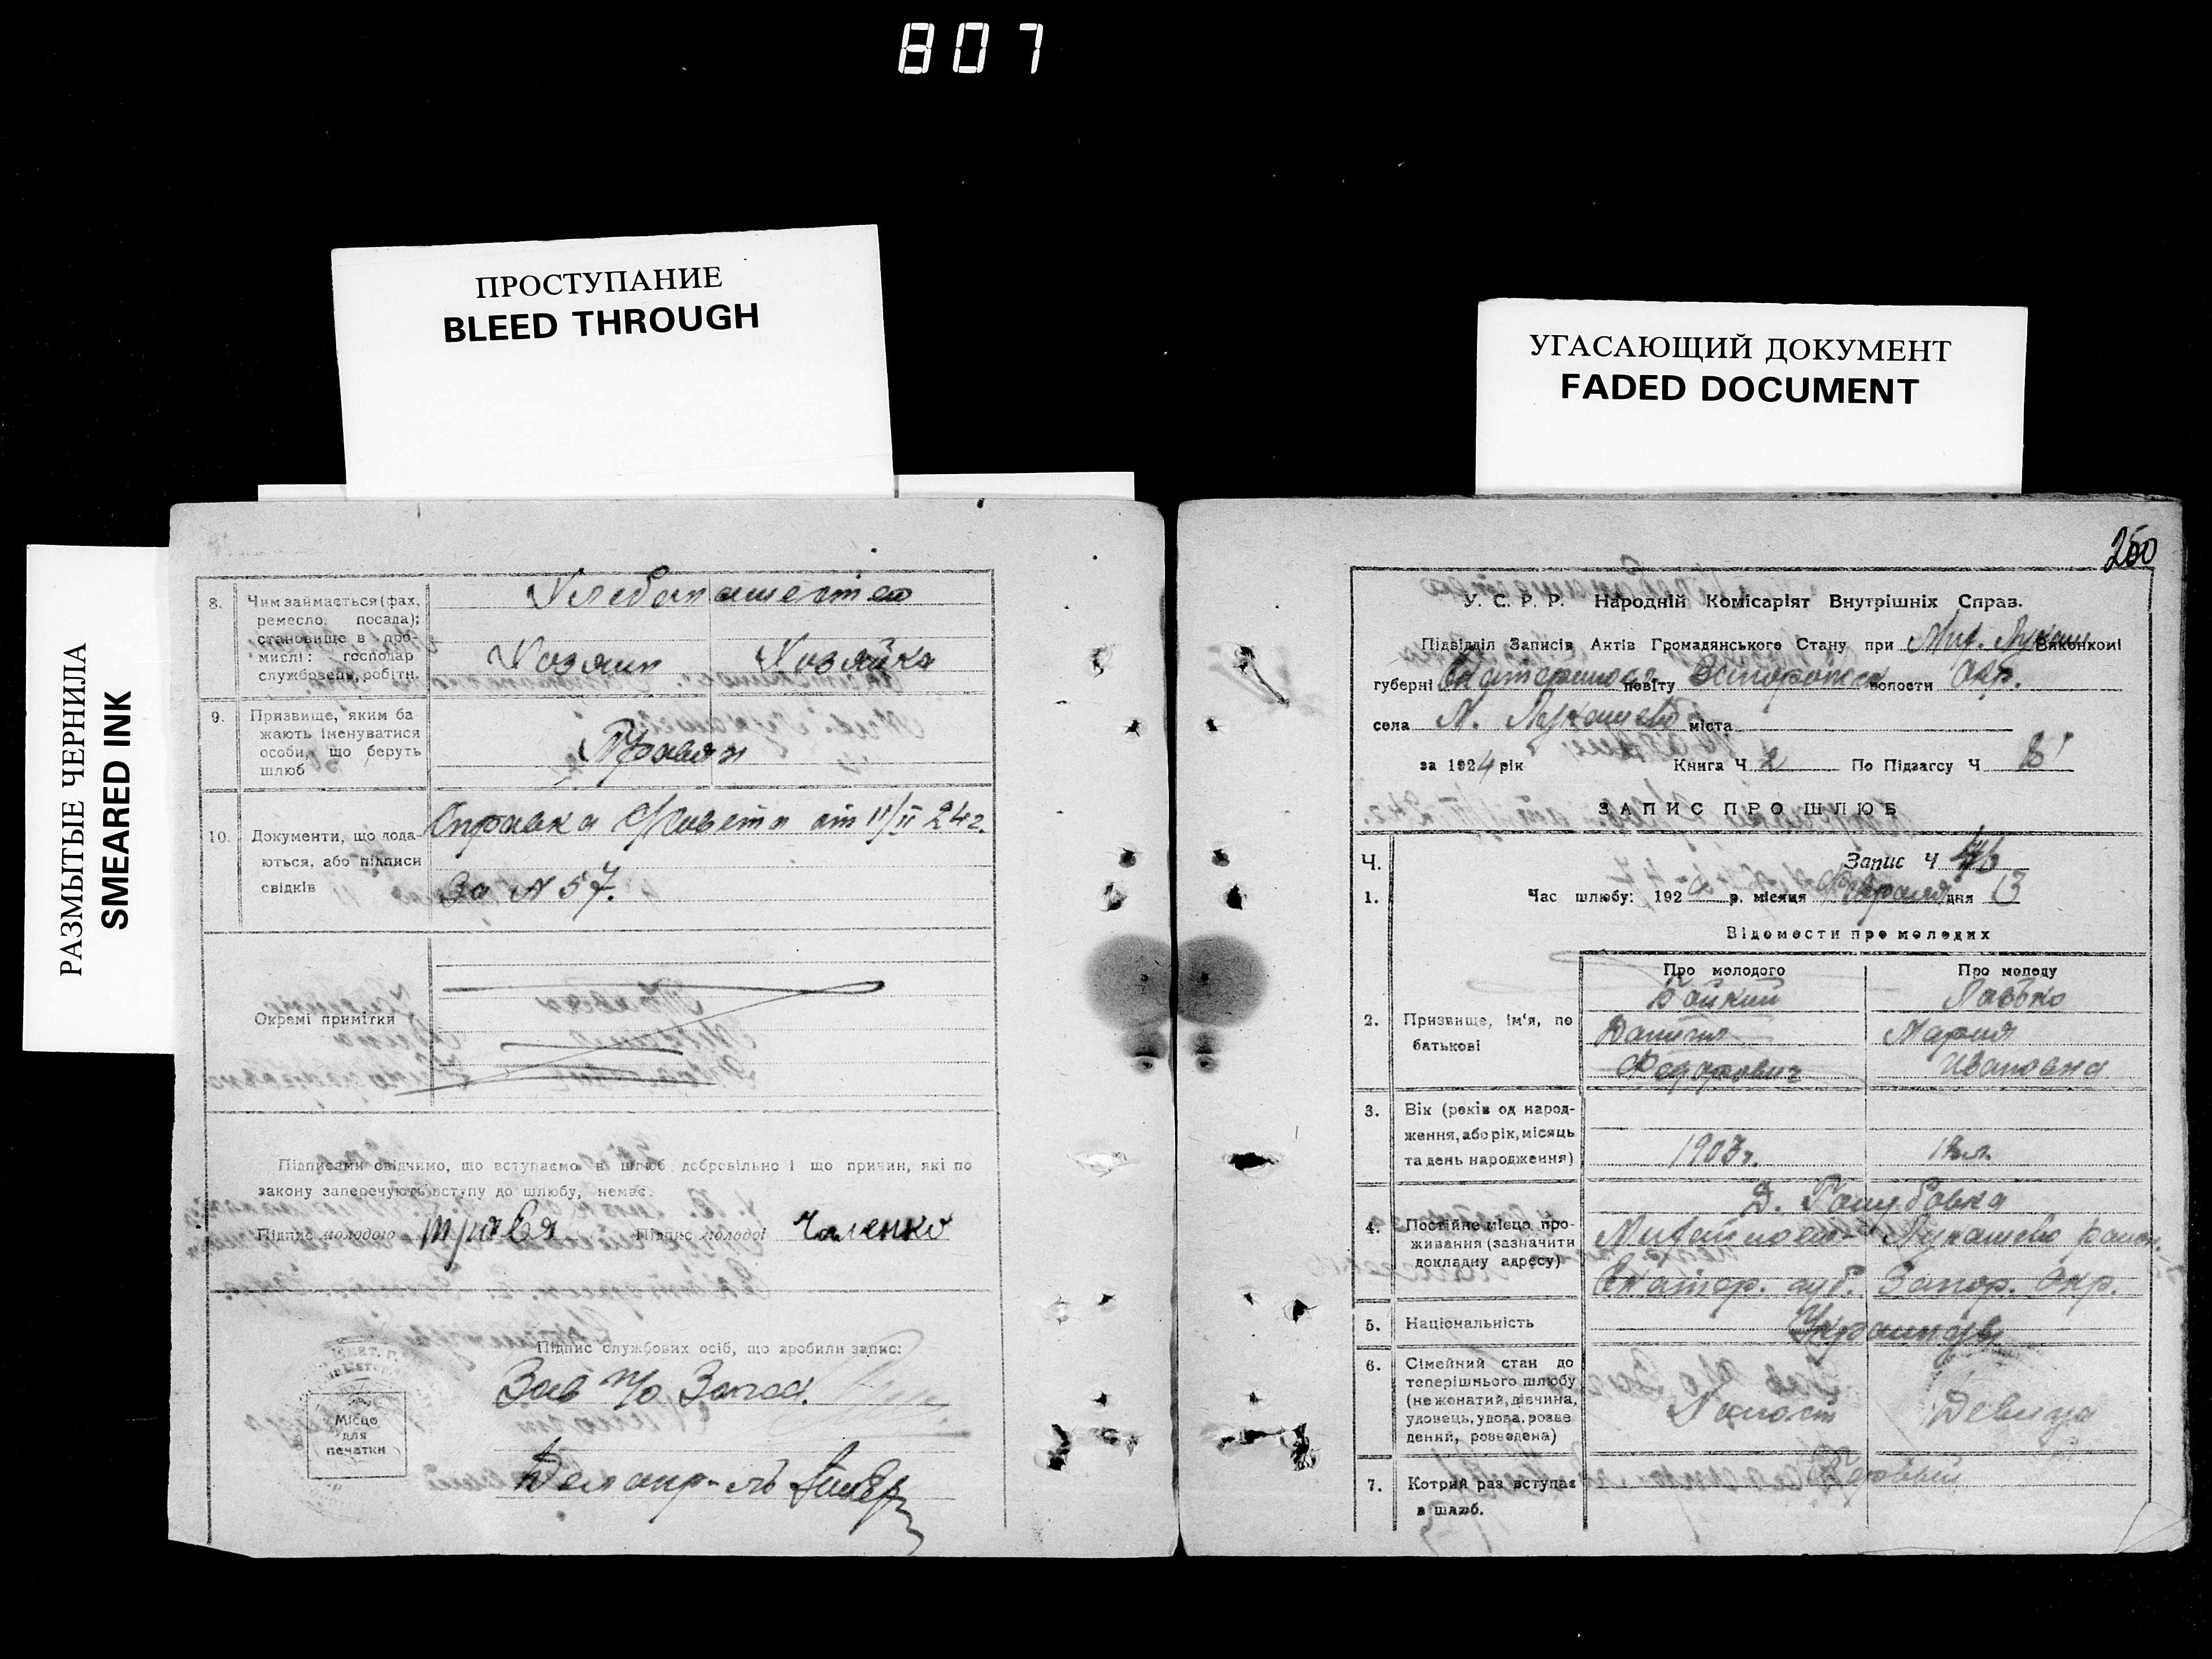 807
ПРОСТУПАНИЕ
BLEED THROUGH
УГАСАЮЩИЙ ДОКУМЕНТ
FADED DOCUMENT
РАЗМЫТЫЕ ЧЕРНИЛА
SMEARED INK
8. Чим займається (фах,
ремесло, посада);
становище в про-
мислі: господар
службовець, робітн.
Хлебопашество
Хозяин Хозяйка
9. Призвище, яким ба-
жають іменуватися
особи, що беруть
шлюб
10. Документи, що дода-
ються, або підписи
свідків
Справка с/совета от 11/II 24 г.
За N 57.
Окремі примітки
Підписами свідчимо, що вступаємо в шлюб добровільно і що причин, які по
закону заперечують вступу до шлюбу, немає.
Підпис молодого Підпис молодої Чаленко
Підпис службових осіб, що зробили запис:
Зав п/о Запса
Делопр-ль
Місце
для
печатки
250
У. С. Р. Р. Народній Комісаріят Внутрішніх Справ.
Підвідділ Записів Актів Громадянського Стану при Мих. Лукаш Виконкомі
губерні Екатеринос. повіту Запорожск волости Окр.
села М. Лукашево міста
за 1924 рік Книга Ч 2 По Підзагсу Ч
ЗАПИС ПРО ШЛЮБ
Ч. Запис Ч
1. Час шлюбу: 192 р. місяця Февраля дня 13
Відомости про молодих
Про молодого Про молоду
2. Призвище, ім'я, по
батькові
Даниил Мария
Федорович Ивановна
3. Вік (років од народ-
ження, або рік, місяць
та день народження)
1903 г. 18 л.
4. Постійне місце про-
живання (зазначити
докладну адресу)
Михайлово-Лукашево район.
Екатер. губ. Запор. Окр.
5. Національність
Украинцы
6. Сімейний стан до
теперішнього шлюбу
(не жонатий, дівчина,
удовець, удова, розве
дений, розведена)
Холост Девица
7. Котрий раз вступає
в шлюб.
Первый